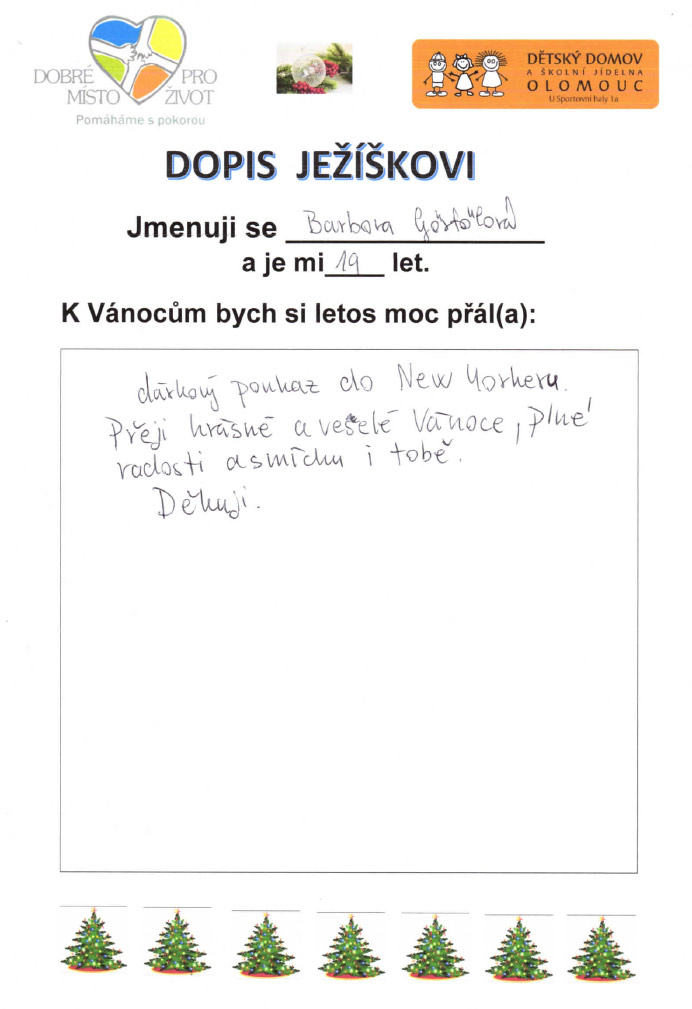 DOBRÉ PRO
MÍSTO ŽIVOT
Pomáháme s pokorou
DĚTSKÝ DOMOV
A ŠKOLNÍ JÍDELNA
OLOMOUC
U Sportovní haly 1a
DOPIS JEŽÍŠKOVI
Jmenuji se Barbora
a je mi 19 let.
K Vánocům bych si letos moc přál(a):
dárkový poukaz do New Yorkeru.
Přeji krásné a veselé Vánoce, plné
radosti a smíchu i tobě.
Děkuji.